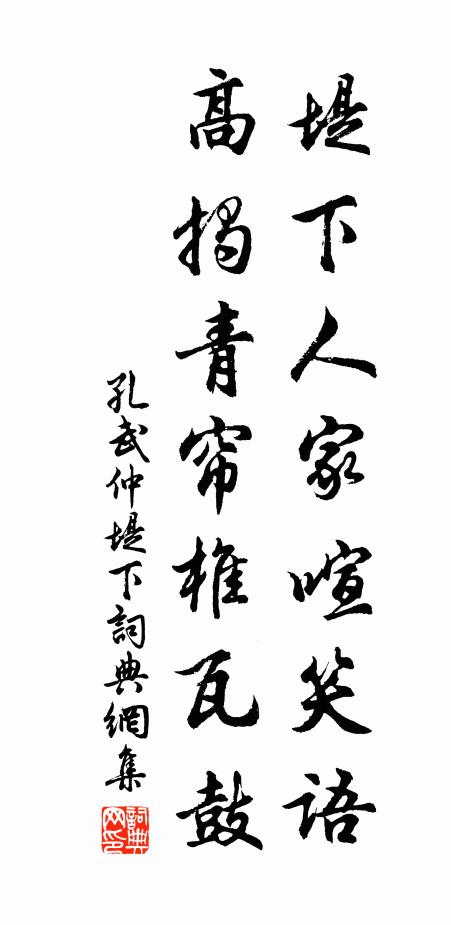 堤下人家喧笑語
高揭青帘椎瓦鼓
孔武仲堤下詞典網集
詞典网印